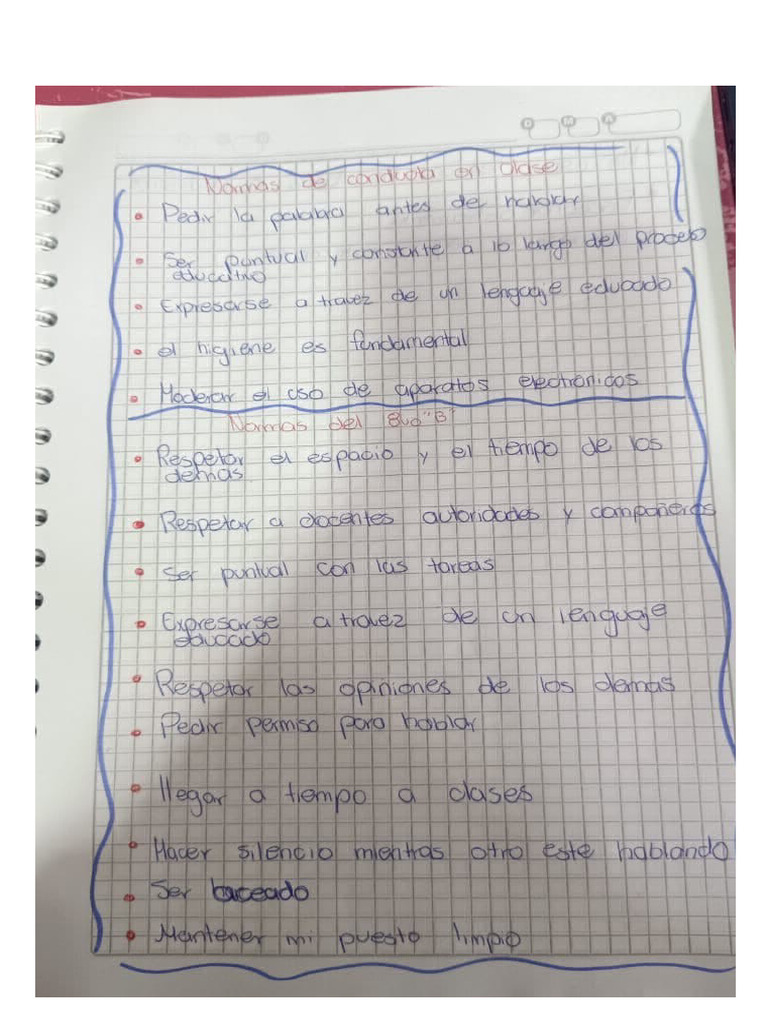 Normas de conducta en clase
• Pedir la palabra antes de hablar
• Ser puntual y constante a lo largo del proceso
educativo
• Expresarse a travez de un lenguaje educado
• el higiene es fundamental
• Moderar el uso de aparatos electronicos
Normas del 8vo "B"
• Respetar el espacio y el tiempo de los
demas
• Respetar a docentes autoridades y compañeros
• Ser puntual con las tareas
• Expresarse a travez de un lenguaje
educado
• Respetar las opiniones de los demas
• Pedir permiso para hablar
• llegar a tiempo a clases
• Hacer silencio mientras otro este hablando
• Ser
• Mantener mi puesto limpio